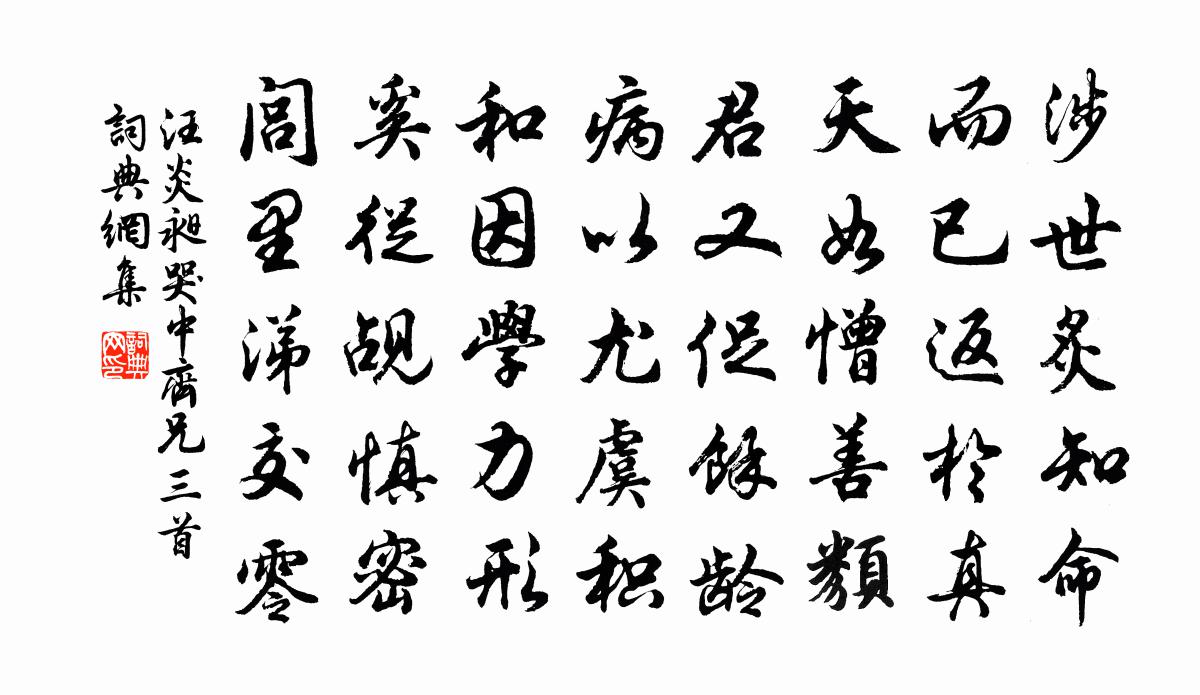 涉世炙知命
而已返於真
天如憎善類
君又促餘龄
病以尤虞积
和因學力形
奚從觇慎密
閭里涕交零
汪炎昶哭中齊兄三首
詞典網集
詞典网印